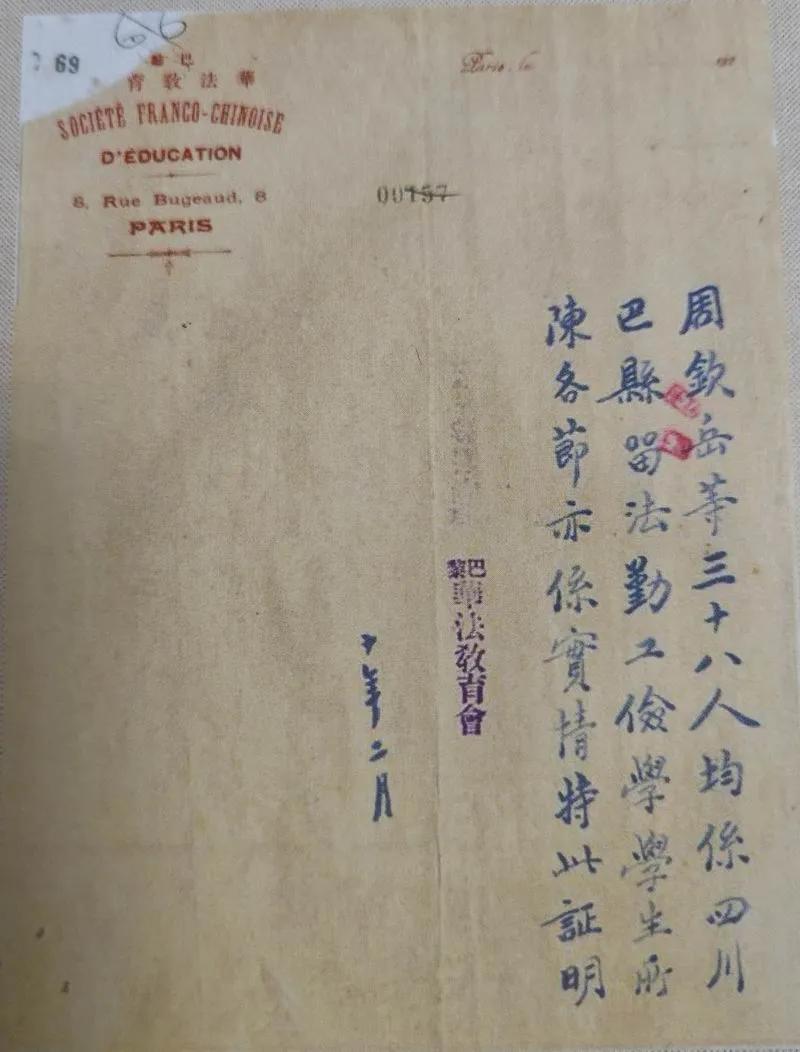 69
66
巴黎
華法教育
SOCIÉTÉ FRANCO-CHINOISE
D'ÉDUCATION
8, Rue Bugeaud, 8
PARIS
Paris, le
191
00157
周欽岳等三十八人均係四川
巴縣留法勤工儉學學生所
陳各節亦係實情特此証明
巴黎華法教育會
十年二月